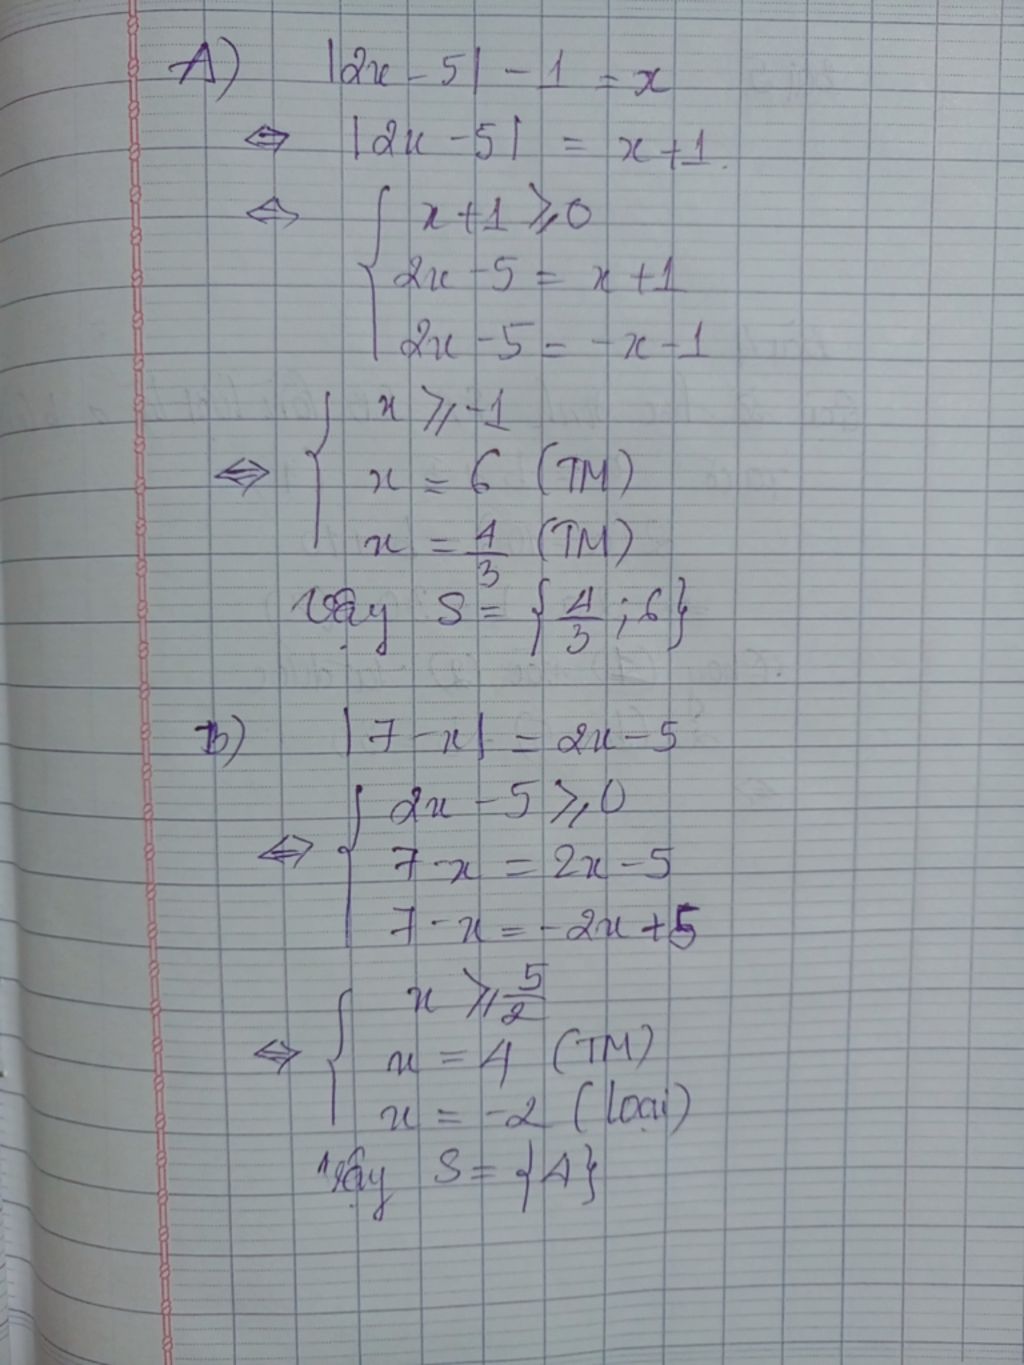 A) |2x - 5| - 1 = x
⇔ |2x - 5| = x + 1
⇔ { x + 1 ⩾ 0
2x - 5 = x + 1
2x - 5 = -x - 1
⇔ { x ⩾ -1
x = 6 (TM)
x = 4/3 (TM)
Vậy S = {4/3 ; 6}
B) |7 - x| = 2x - 5
⇔ { 2x - 5 ⩾ 0
7 - x = 2x - 5
7 - x = -2x + 5
⇔ { x ⩾ 5/2
x = 4 (TM)
x = -2 (loại)
Vậy S = {4}